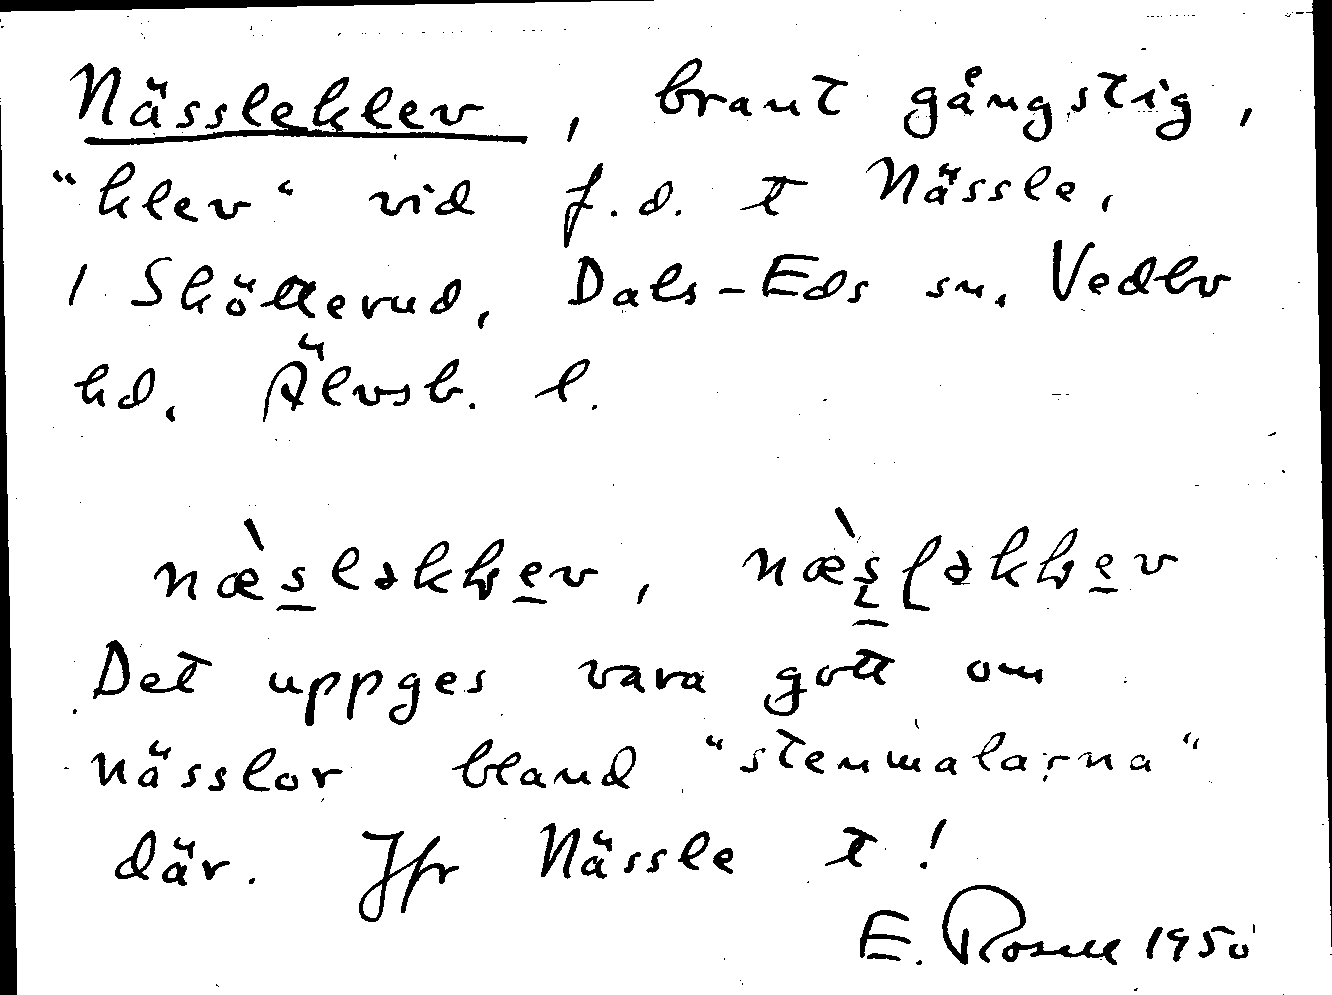 Nässleklev, brant gångstig,
"klev" vid f.d. t Nässle,
i Sköllerud, Dals-Eds sn. Vedbo
hd. Älvsb. l.
næ̀sləkļev, næ̀şļəkļev
Det uppges vara gott om
nässlor bland "stenmalarna"
där. Jfr Nässle t!
E. Rosell 1950